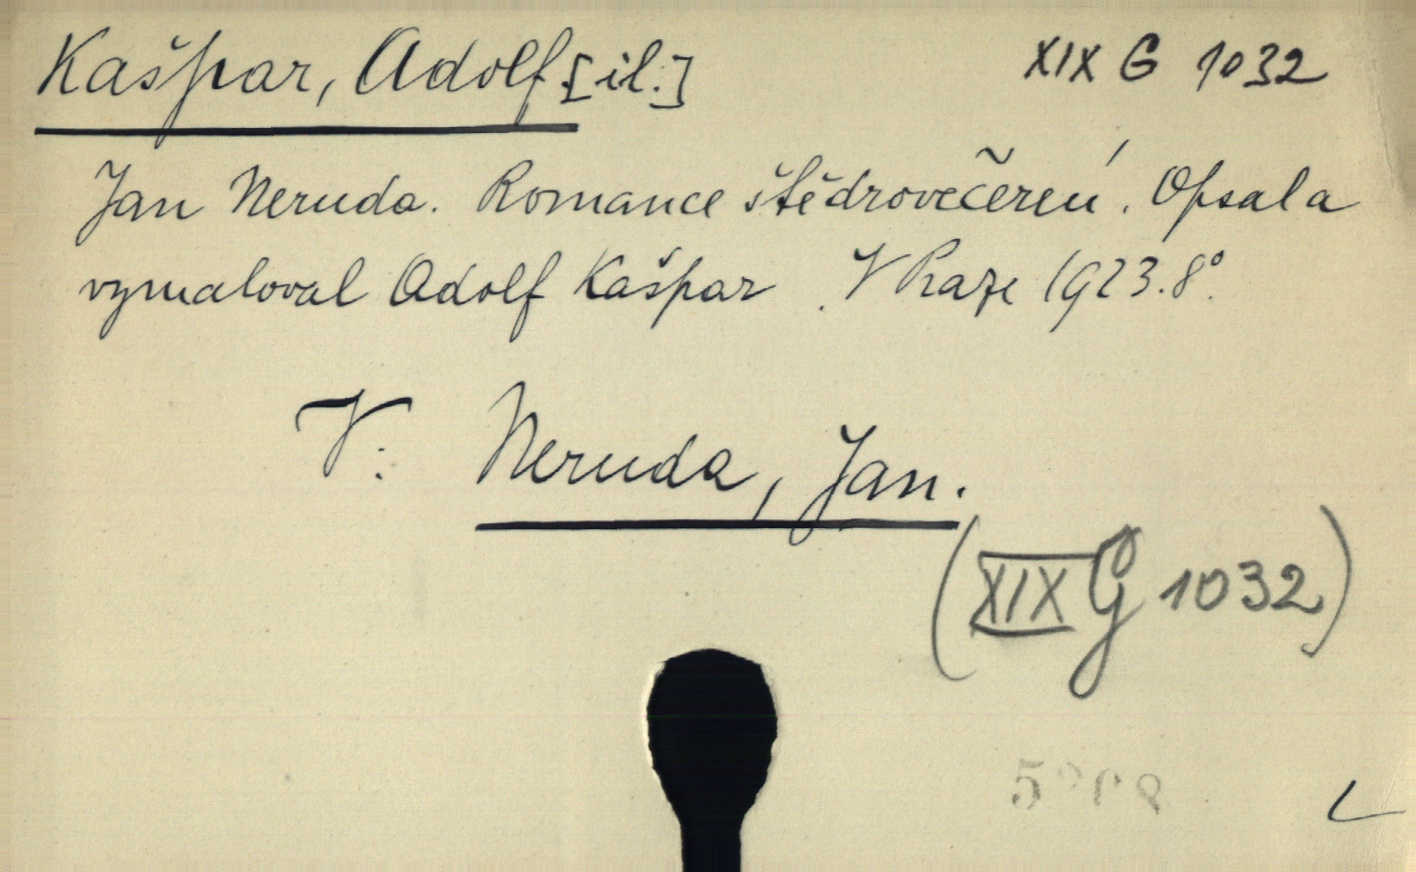 Kašpar, Adolf [il.] XIX G 1032
Jan Neruda. Romance štědrovečerní. Opsal a
vymaloval Adolf Kašpar. V Praze 1923. 8°.
V: Neruda, Jan.
(XIX G 1032)